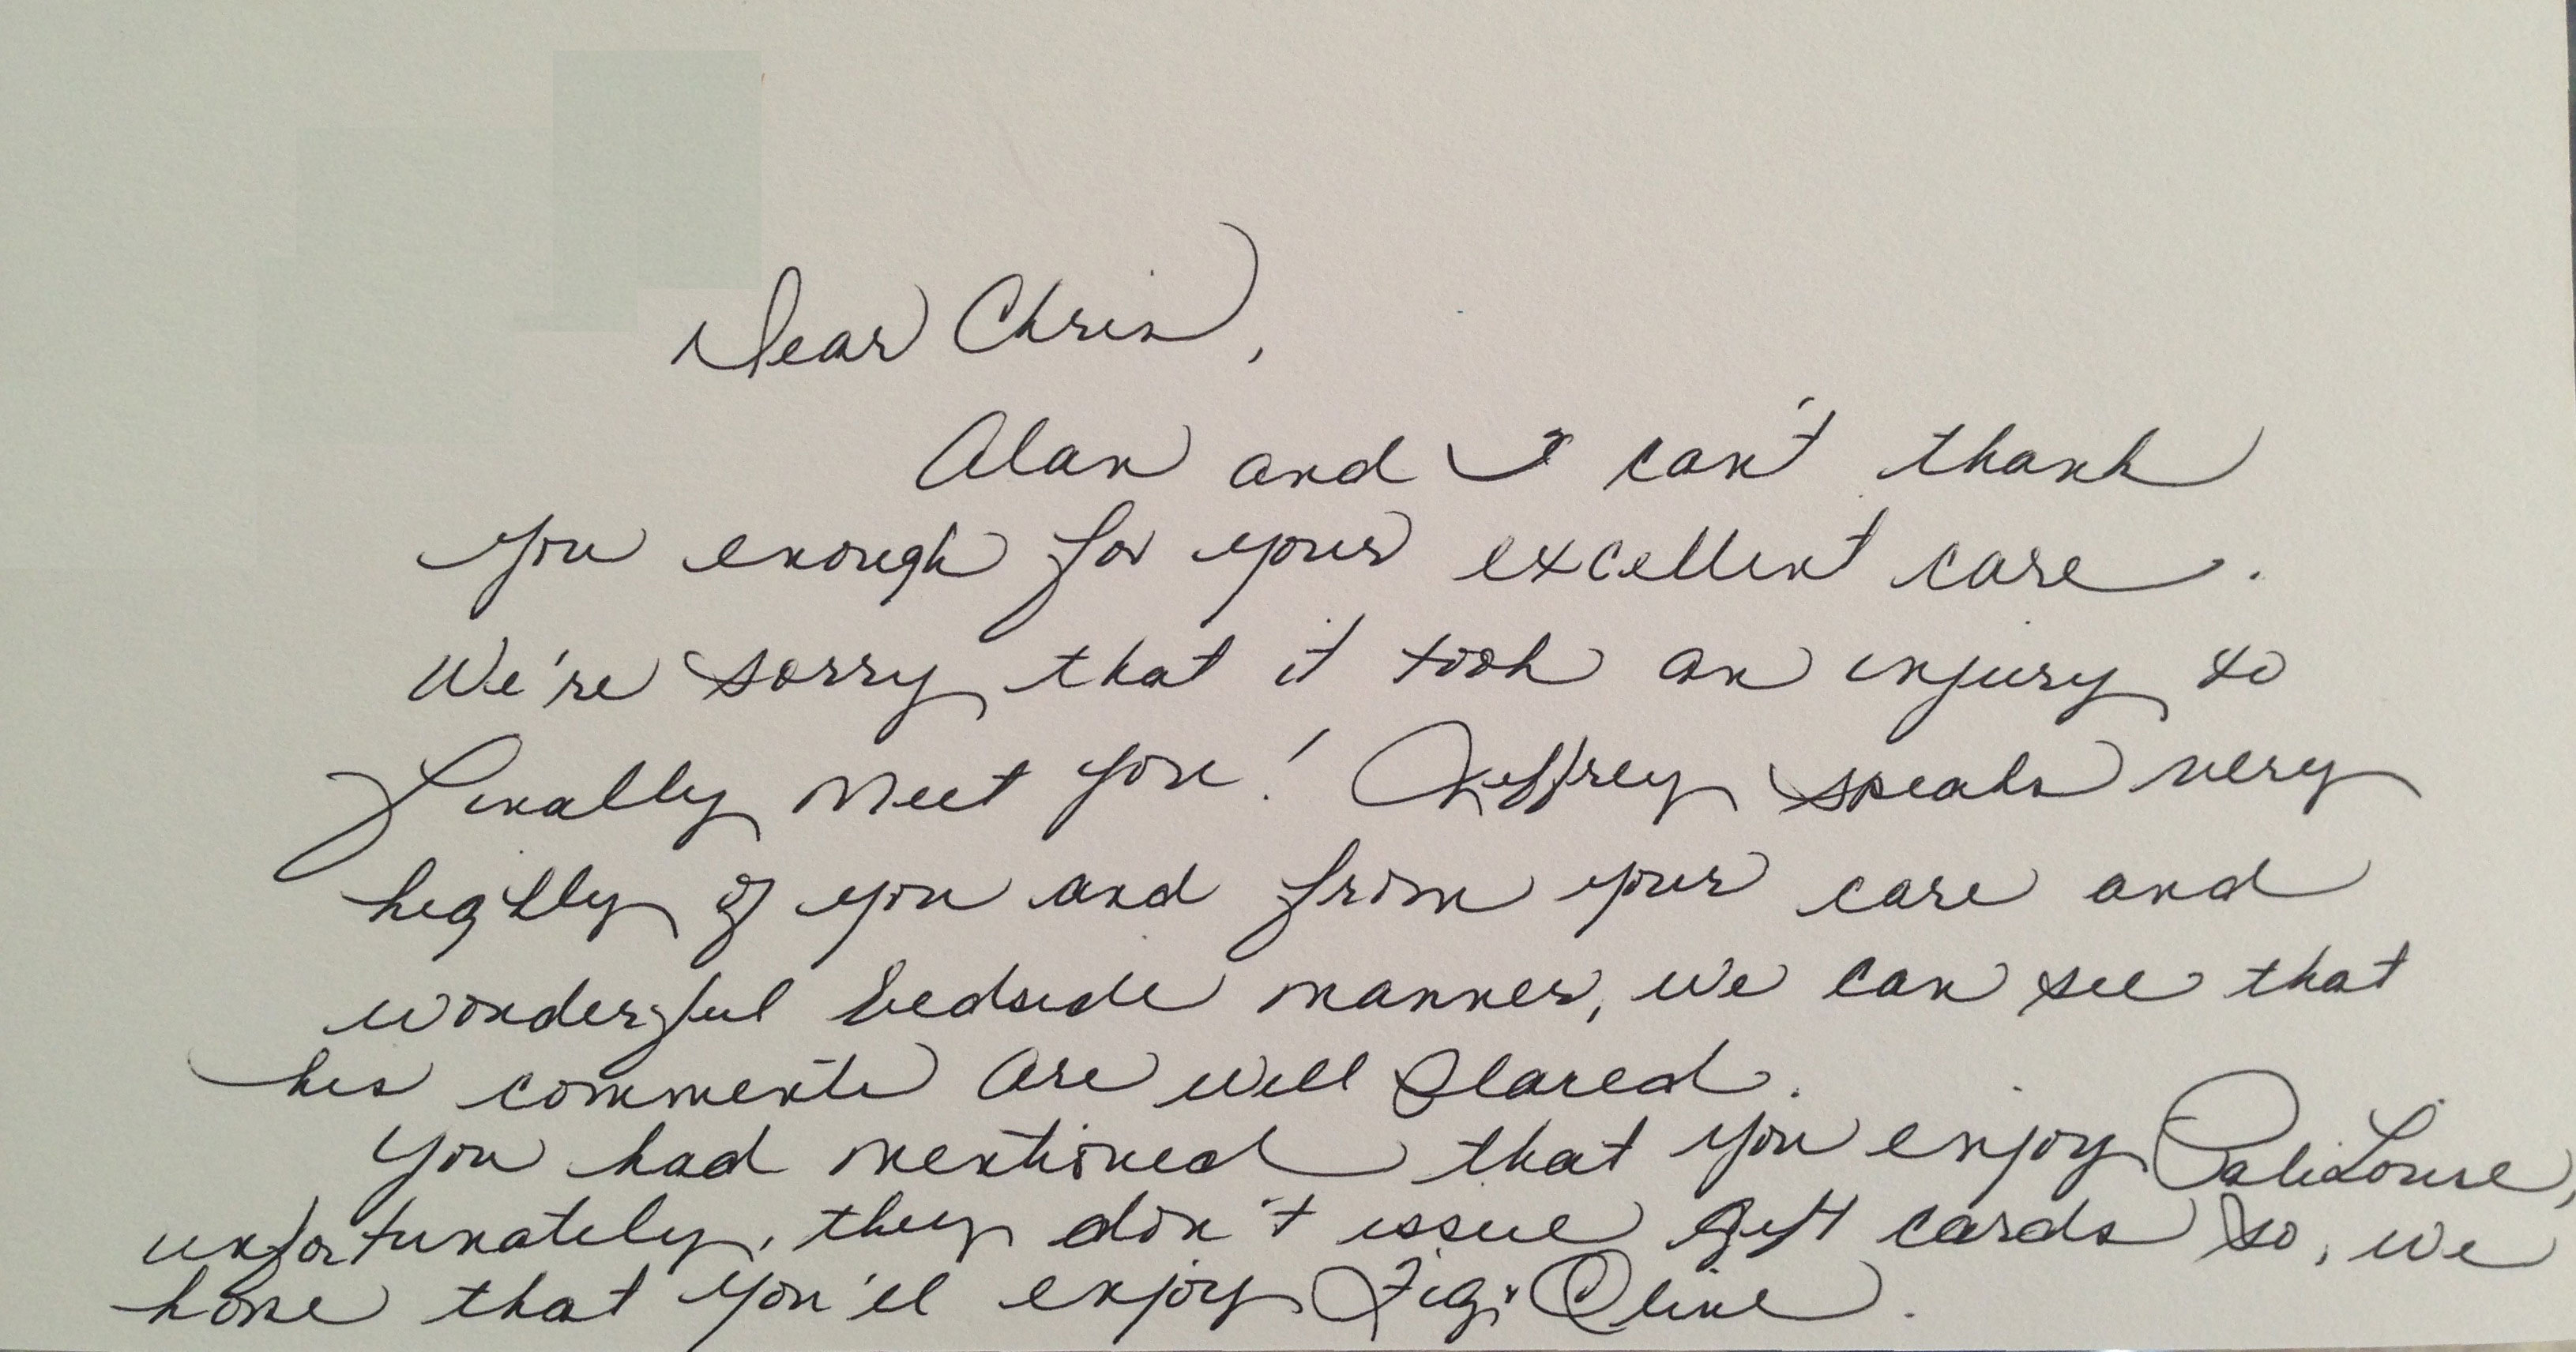 Dear Chris,
Alan and I can't thank
you enough for your excellent care.
We're sorry that it took an injury to
finally meet you! Jeffrey speaks very
highly of you and from your care and
wonderful bedside manner, we can see that
his comments are well placed.
You had mentioned that you enjoy
unfortunately, they don't issue gift cards so, we
hope that you'll enjoy Fig & Olive.